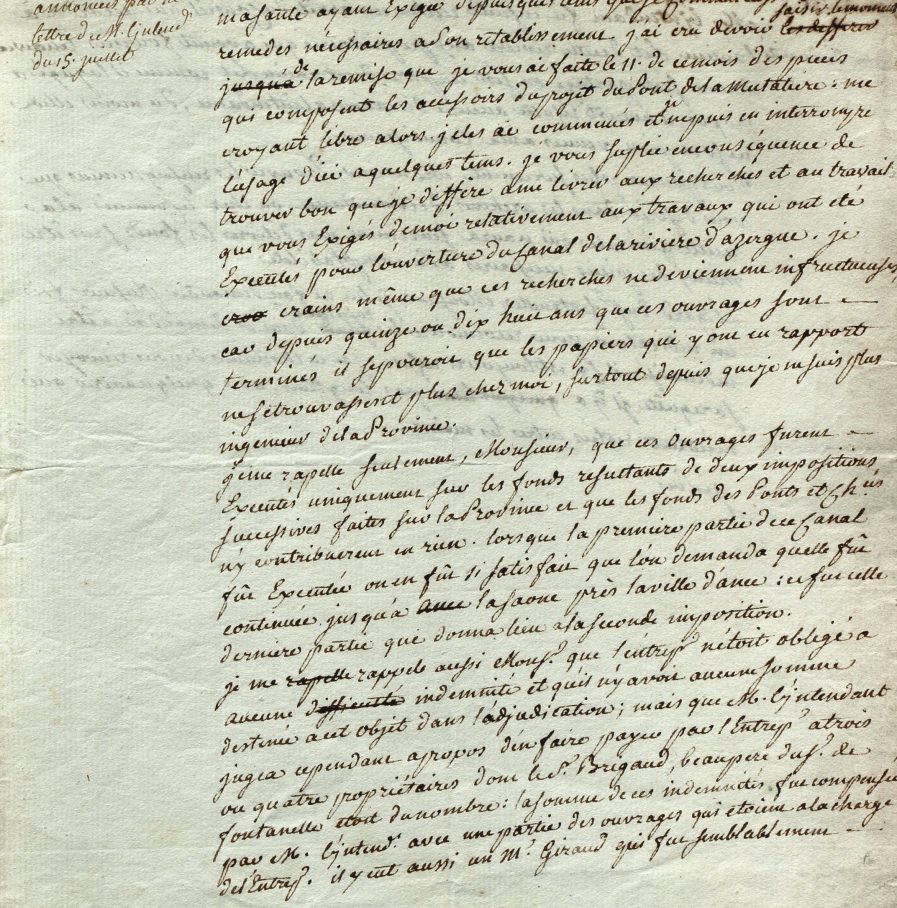 annoncées par la
lettre de M. L'jntend.t
du 15. juillet
ma santé ayant Exigée depuis quelque tems que je
saisir le moment
remedes nécessaires a Son rétablissement j'ai cru devoir les differer
jusqu'à de la remise que je vous ai faite le 11. de ce mois des pieces
qui composent les acessoirs du projet du Pont de la Mulatiere : me
croyant libre alors je les ai commencés et je ne puis en interrompre
l'usage d'ici a quelques tems. je vous suplie en conséquence de
trouver bon que je differe a me livrer aux recherches et au travail
que vous Exigés de moi relativement aux travaux qui ont été
Executés pour l'ouverture du Canal de la riviere d'azergue. je
croi crains même que ces recherches ne deviennent infructueuses,
car depuis quinze ou dix huit ans que ces ouvrages sont
terminés il se pouroit que les papiers qui y ont eu rapport
ne se trouvassent plus chez moi, surtout depuis que je ne suis plus
ingenieur de la Province.
je me rapelle seulement, Monsieur, que ces ouvrages furent
Executés uniquement sur les fonds resultants de deux impositions
successives faites sur la Province et que les fonds des Ponts et Ch.ées
n'y contribuerent en rien. lorsque la premiere partie de ce Canal
fût Executée on en fût si satisfait que l'on demanda quelle fût
continuée jusqu'a anse la saone près la ville d'anse : ce fut cette
derniere partie qui donna lieu a la seconde imposition.
je me rapelle rappele aussi Mons.r que l'entrep.r n'étoit obligé a
aucune difficulté indemnité et qu'il n'y avoit aucune somme
destinée a cet objet dans l'adjudication ; mais que M. L'jntendant
jugea cependant apropos d'en faire payer par l'Entrep.r a trois
ou quatre propriétaires dont le S.r Brigaud, beaupere du S.r de
fontanelle étoit du nombre : la somme de ces indemnités fut compensée
par M. L'jntend.t avec une partie des ouvrages qui étoient a la charge
de l'Entrep.r. il y eut aussi un M.r Giraud qui fut semblablement